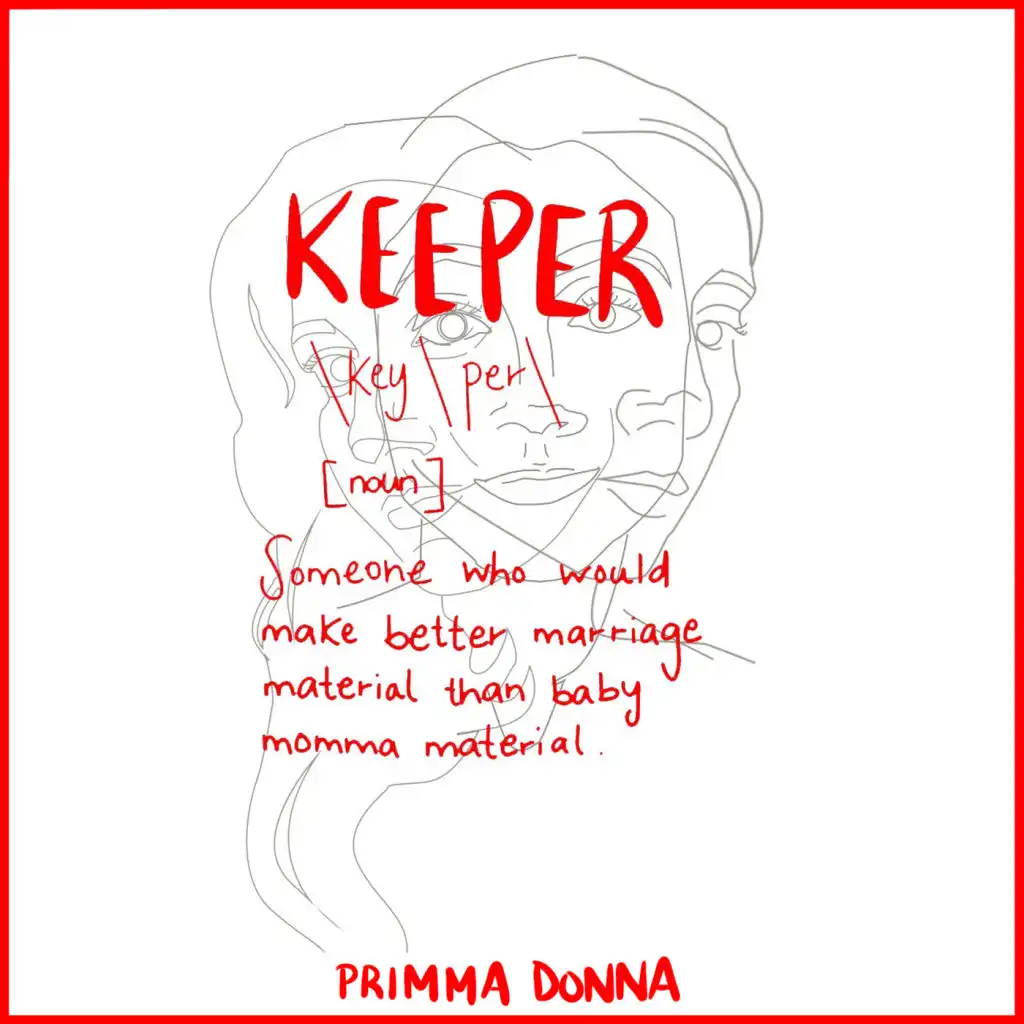 KEEPER
\key\per\
[noun]
Someone who would
make better marriage
material than baby
momma material.
PRIMMA DONNA